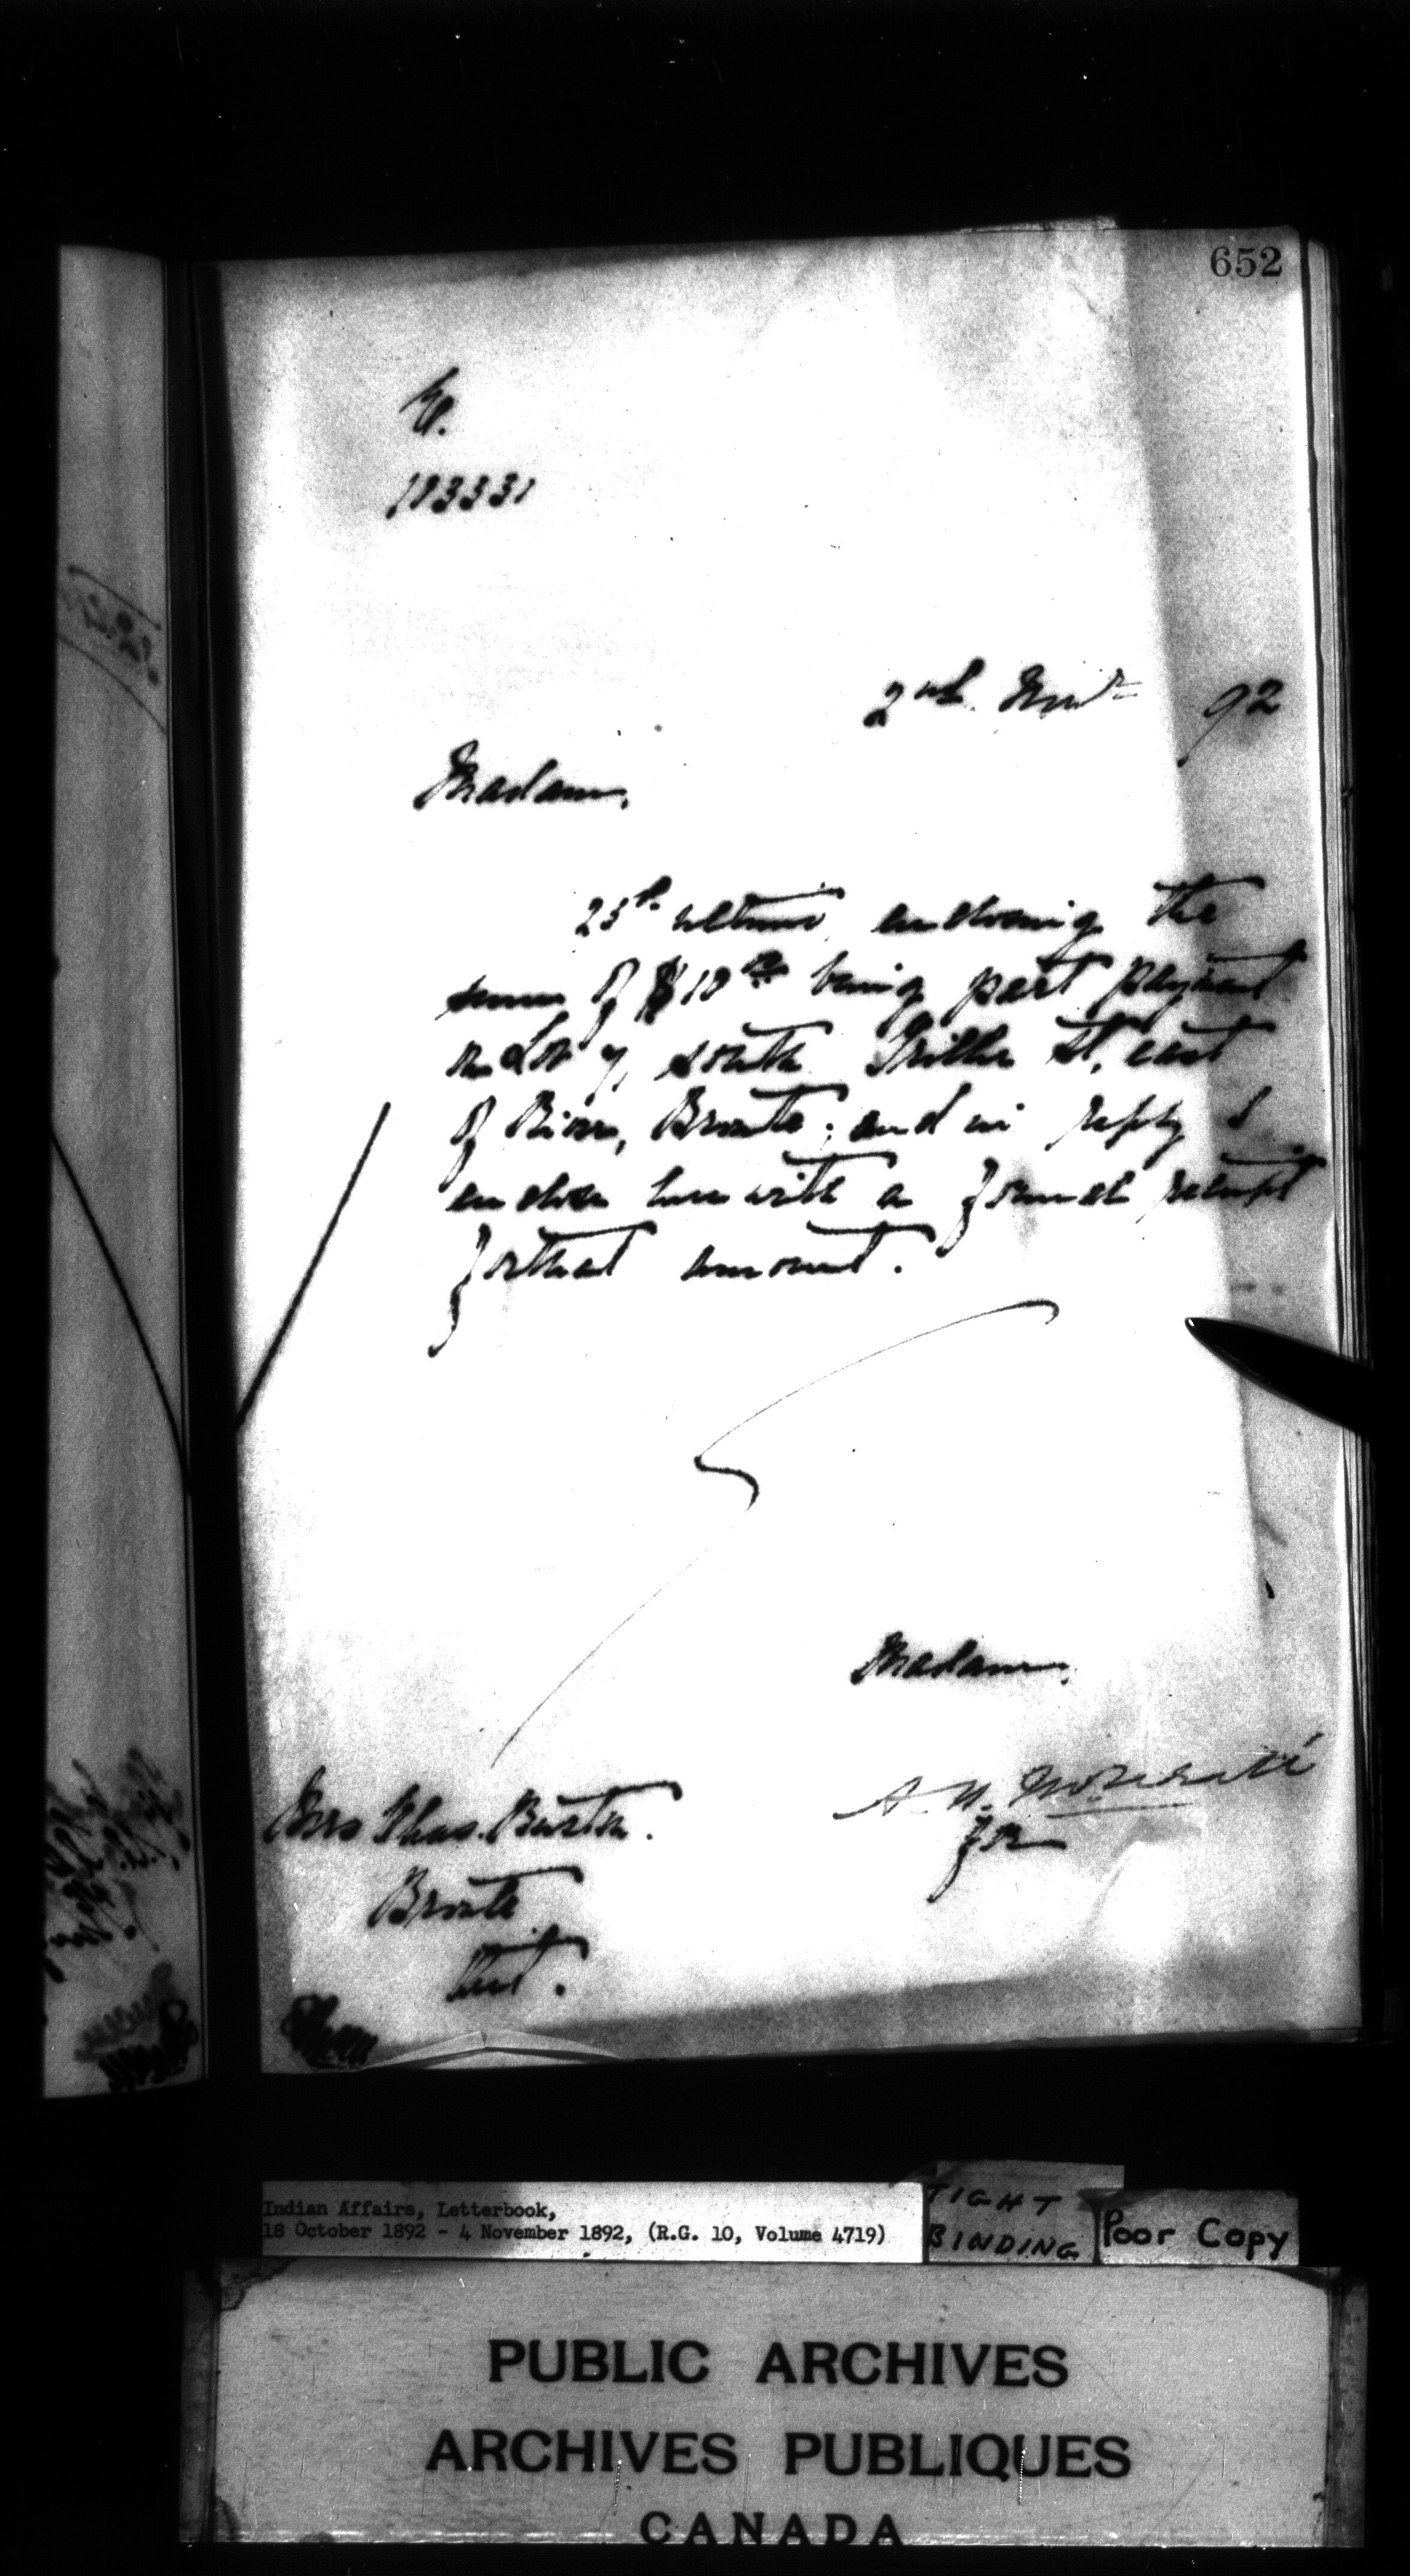 652
183331
2nd Novr 92
Madam,
25th ultimo enclosing the
sum of $10 00 being part payment
on Lot 7, south St. east
of River, Bronte; and in reply I
enclose herewith a formal receipt
for that amount.
Madam,
Mrs Thos. Burton.
Bronte
Ont.
for
Indian Affairs, Letterbook,
18 October 1892 - 4 November 1892, (R.G. 10, Volume 4719)
TIGHT
BINDING
Poor Copy
PUBLIC ARCHIVES
ARCHIVES PUBLIQUES
CANADA